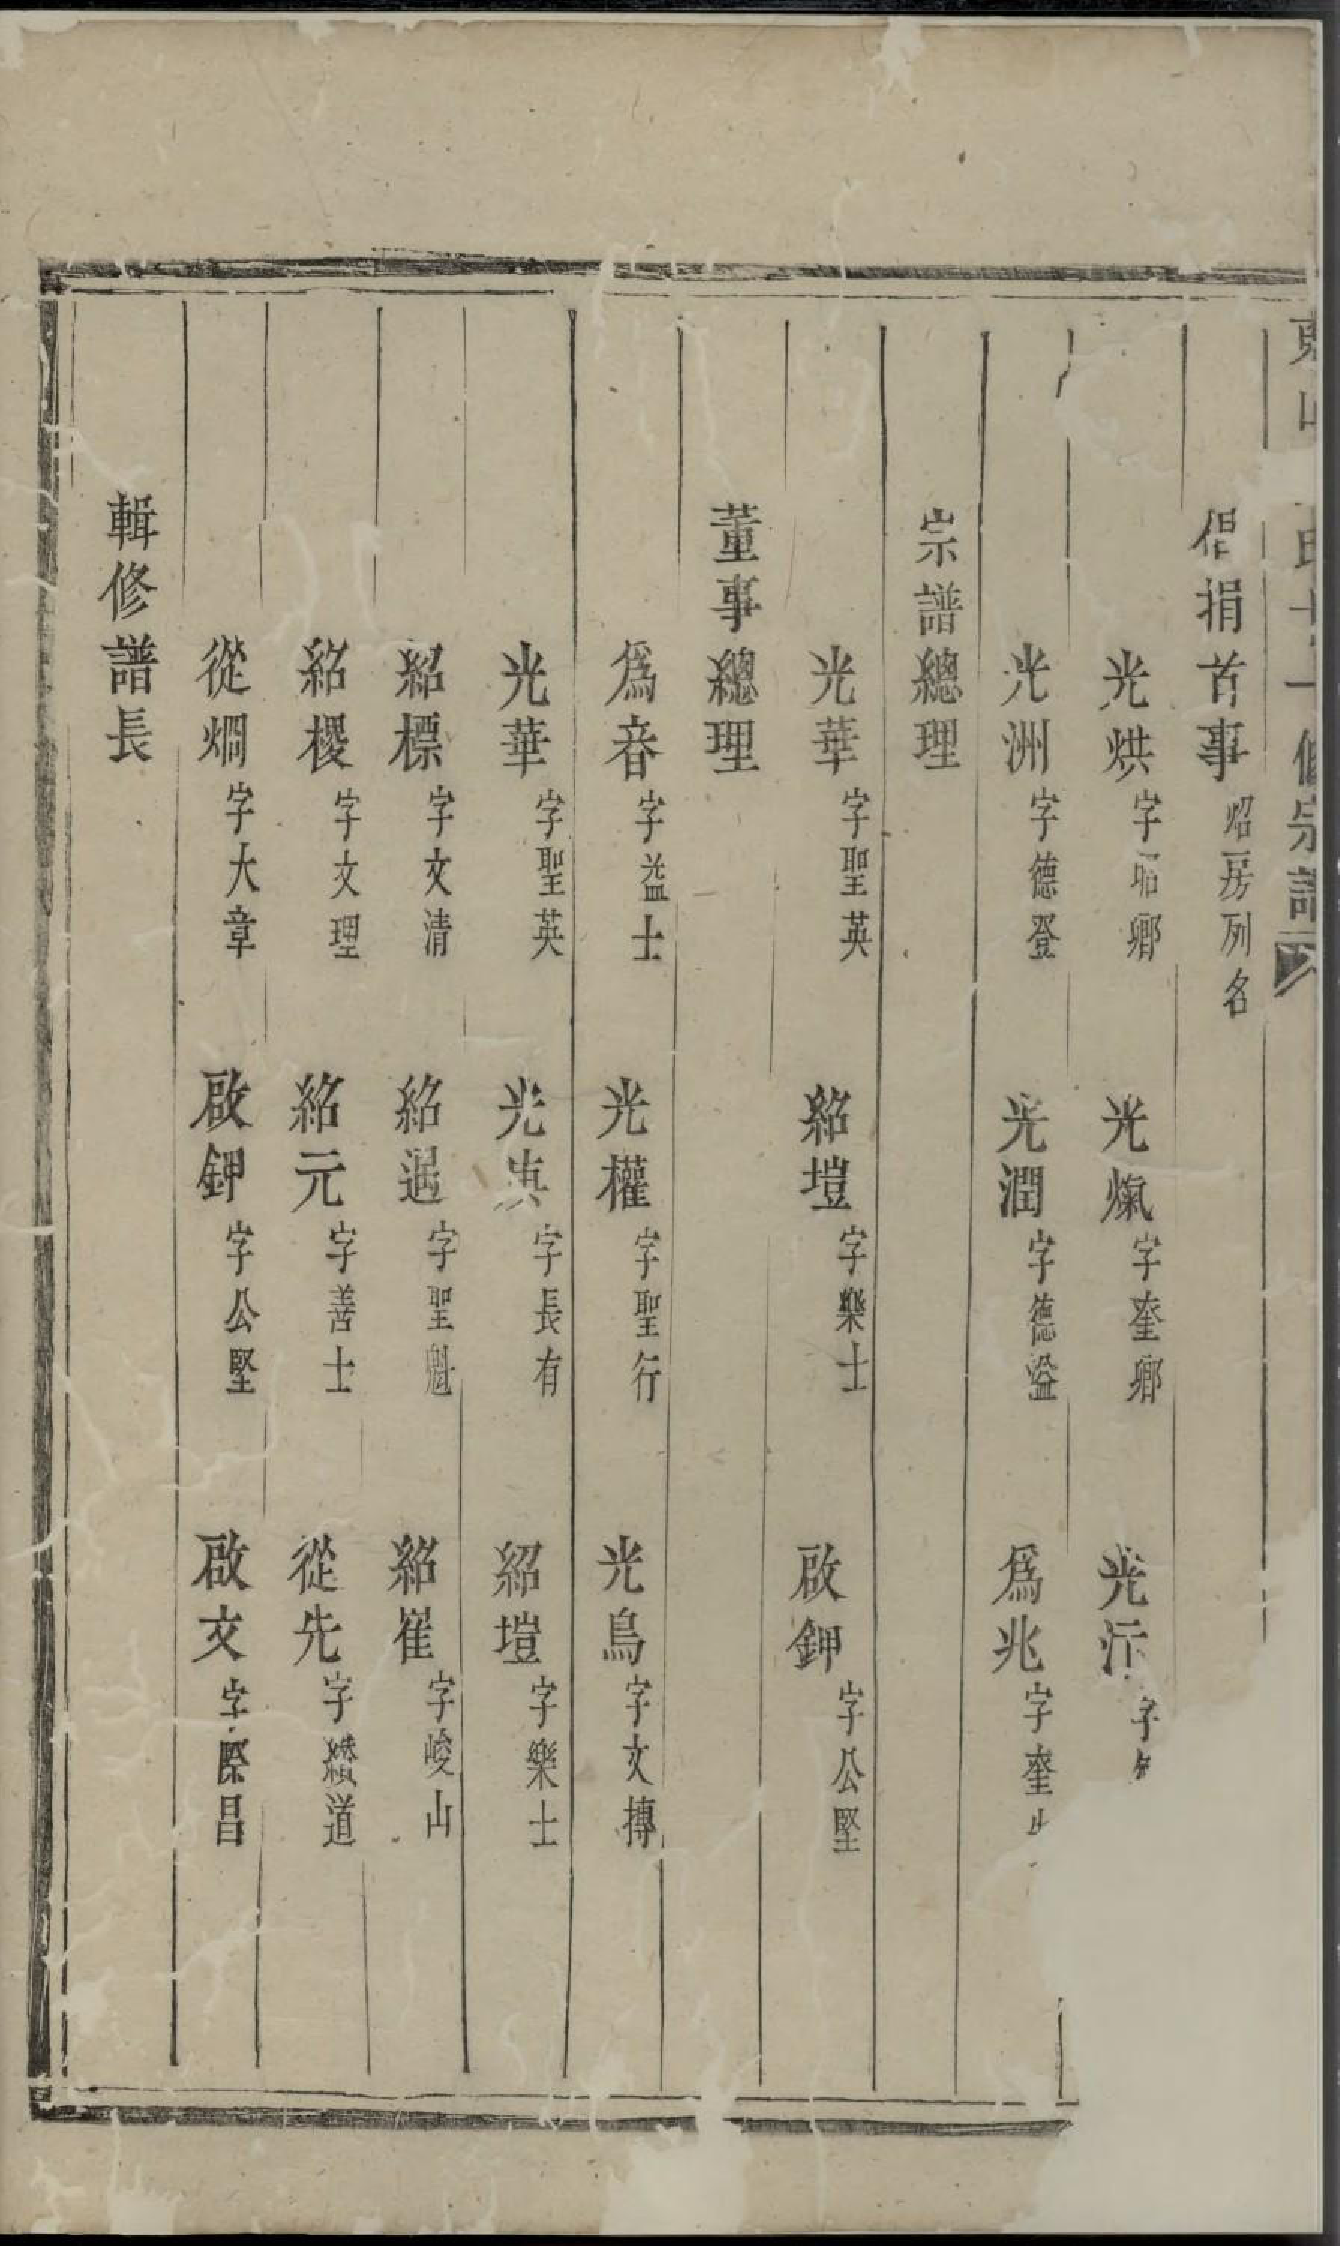 倡捐首事 昭房列名
光烘 字昭卿 光㷩 字奎卿 光汻 字
光洲 字德登 光潤 字德溢 爲兆 字奎
宗譜總理
光華 字聖英 紹塏 字樂士 啟鉀 字公堅
董事總理
爲音 字益士 光權 字聖行 光烏 字文摶
光華 字聖英 光 字長有 紹塏 字樂士
紹標 字文清 紹遇 字聖魁 紹崔 字峻山
紹楥 字文理 紹元 字善士 從先 字纘道
從烱 字大章 啟鉀 字公堅 啟文 字際昌
輯修譜長